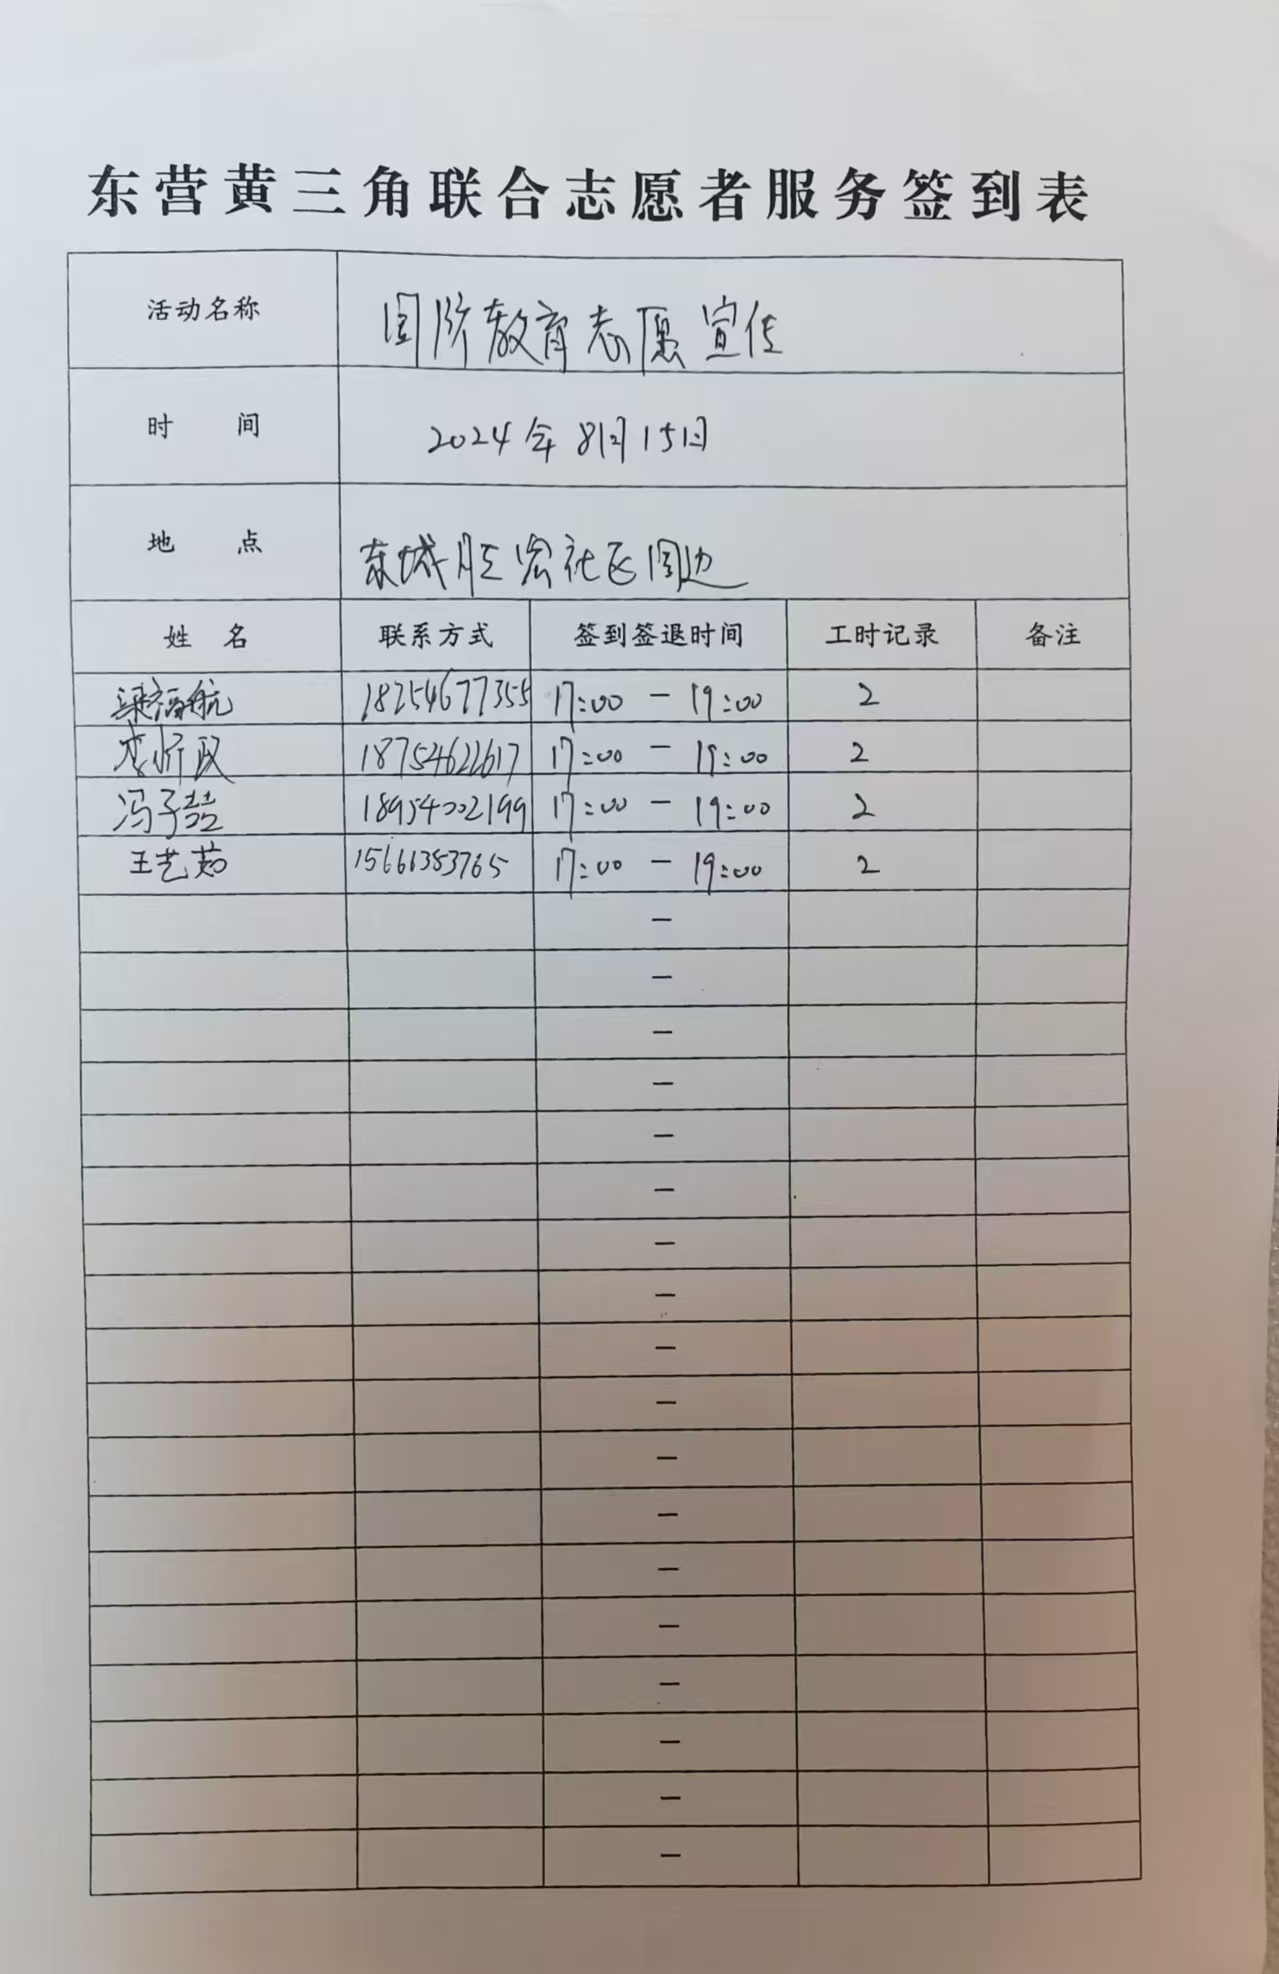 东营黄三角联合志愿者服务签到表
活动名称 国防教育志愿宣传
时 间 2024年8月15日
地 点 东城胜宏社区周边
姓 名 联系方式 签到签退时间 工时记录 备注
梁福航 18254677355 17:00 — 19:00 2
李昕政 18754622617 17:00 — 19:00 2
冯子喆 18954002199 17:00 — 19:00 2
王艺茹 15661383765 17:00 — 19:00 2
—
—
—
—
—
—
—
—
—
—
—
—
—
—
—
—
—
—